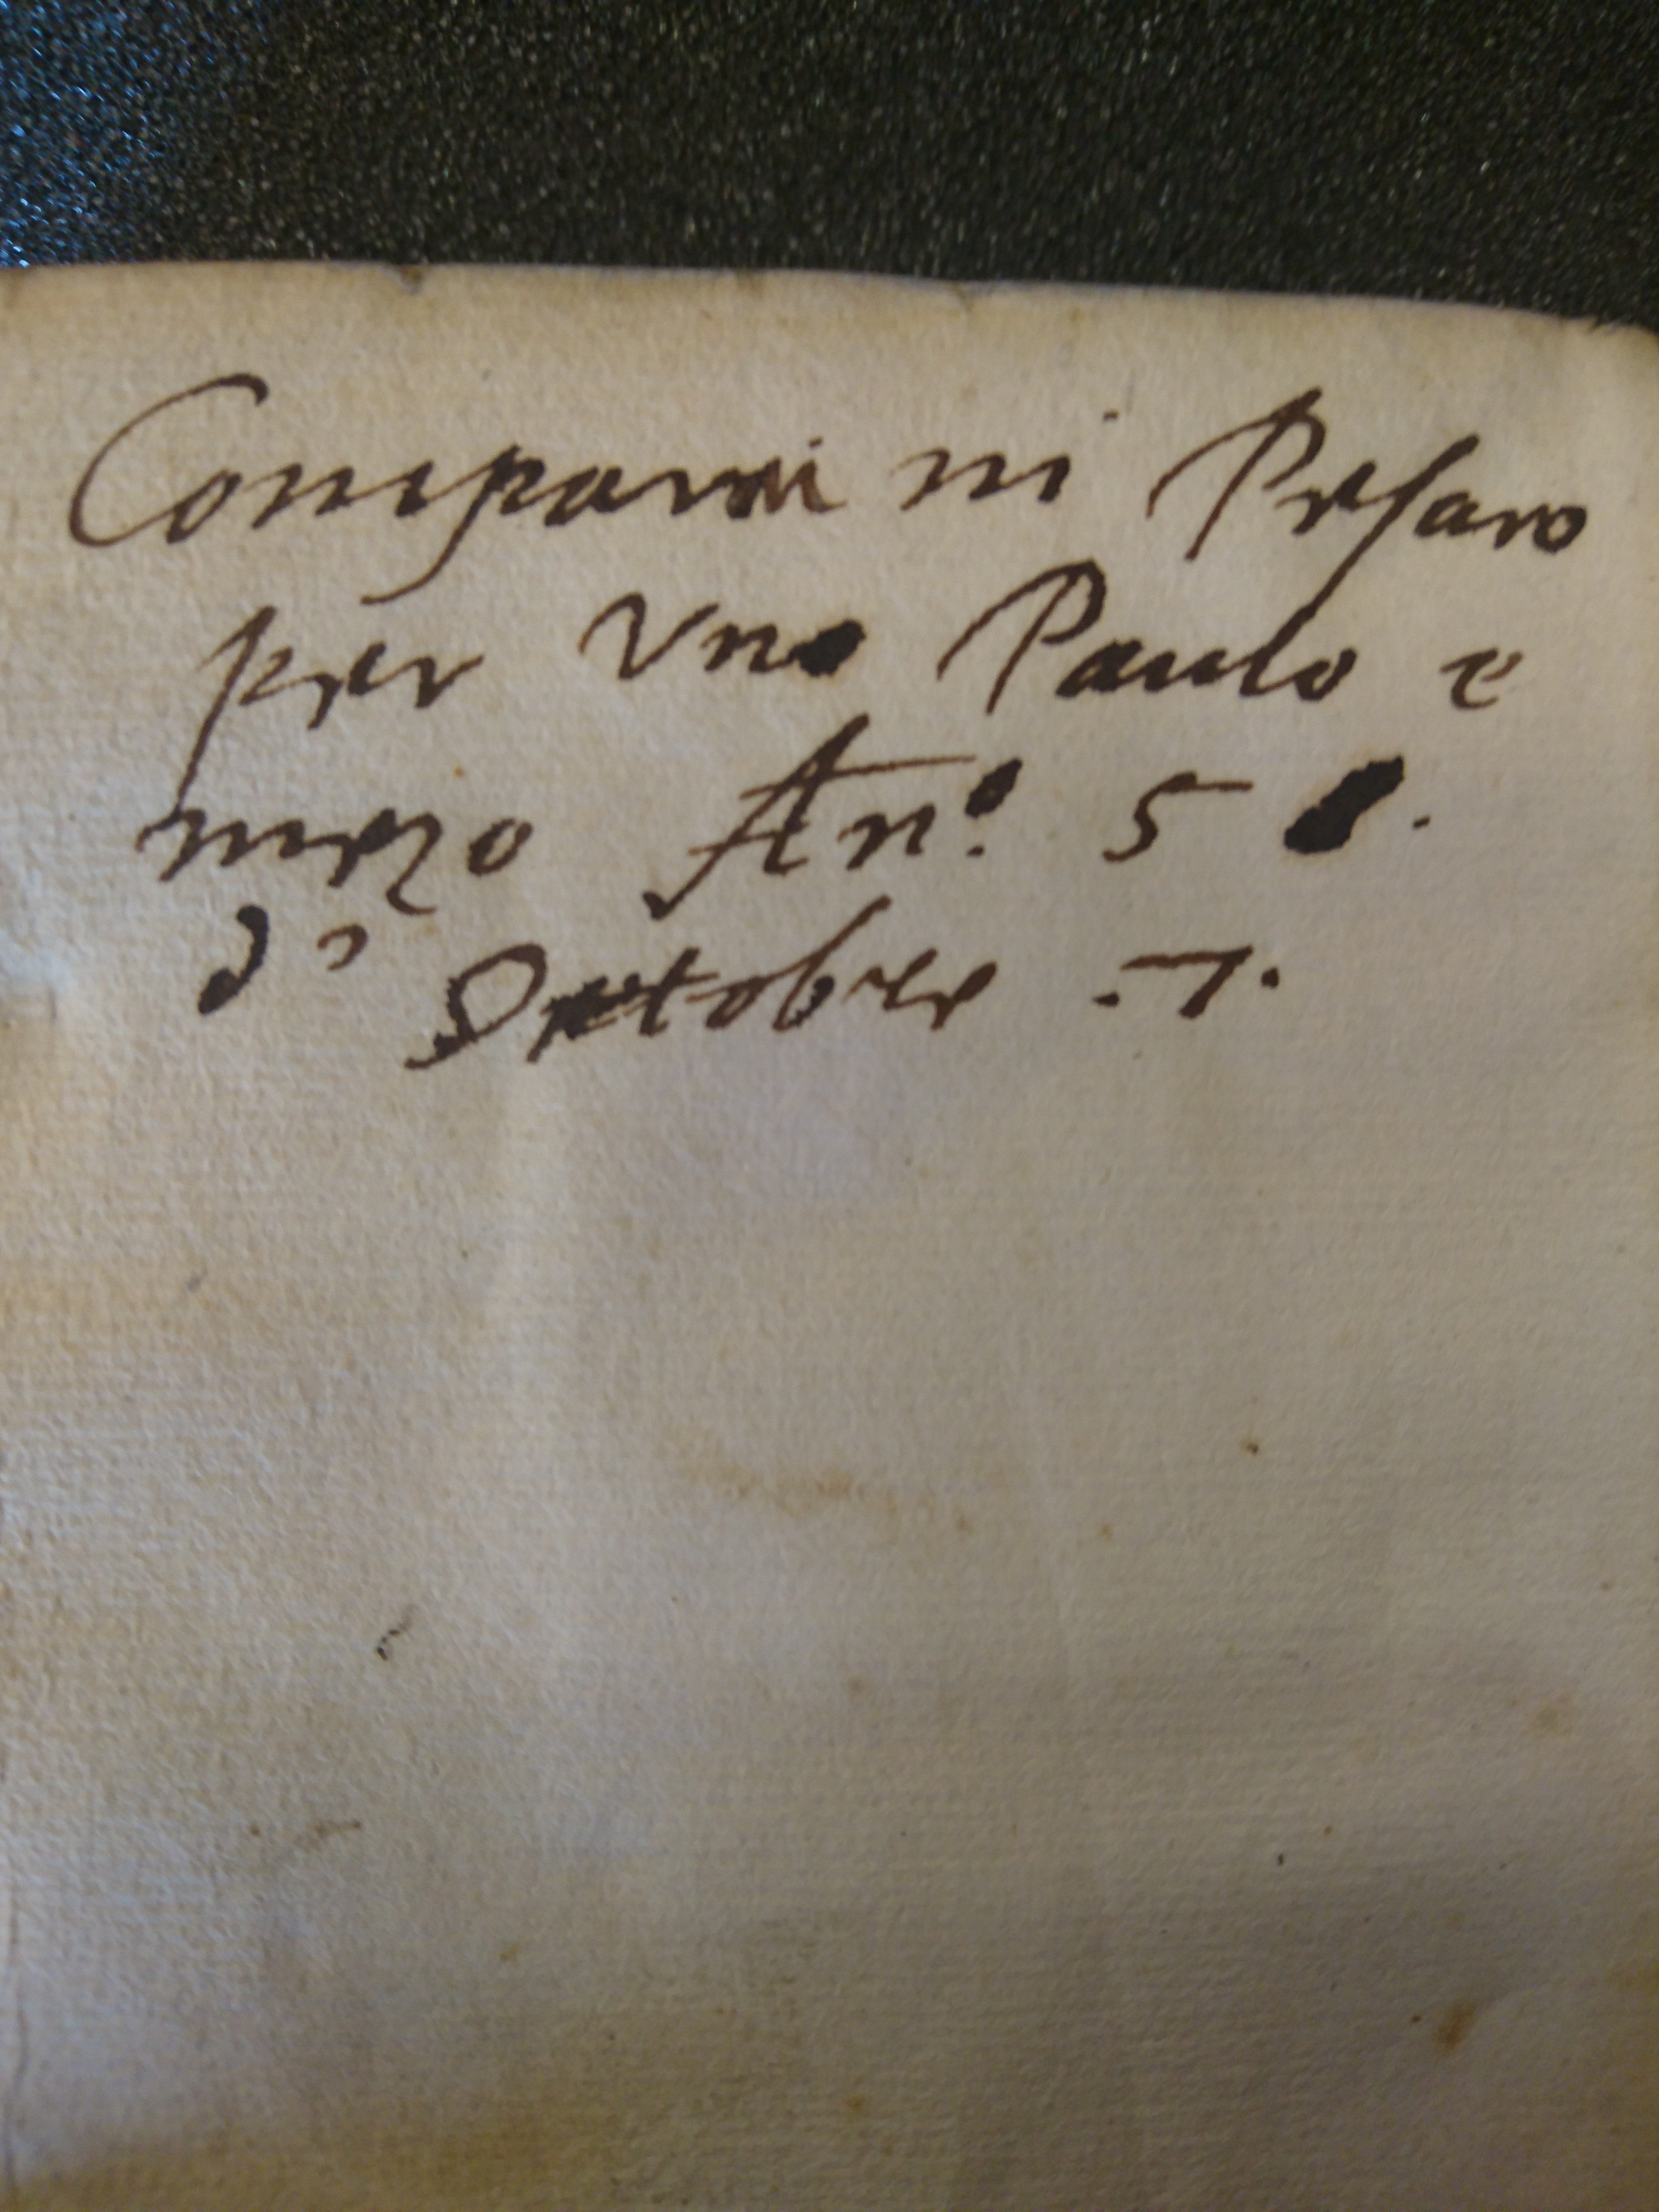 Comparai in Pesaro
per uno Paulo e
mezo An.º 58.
d' Ottobre .7.